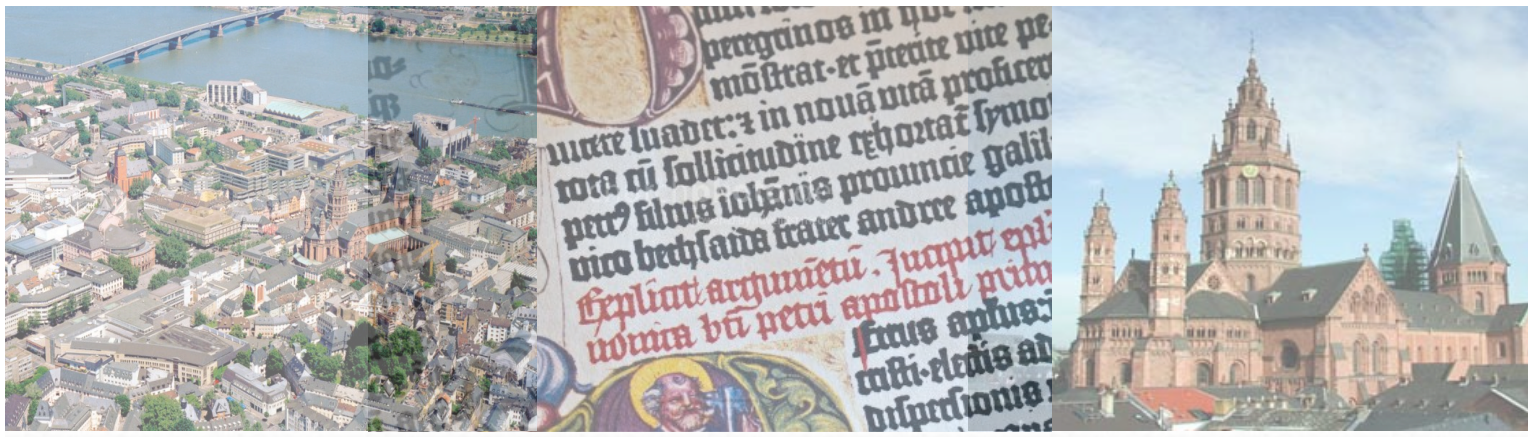 peregrinos in
mōstrat·et p̄sente vite pe
suadet:⁊ in nouā vitā proficer
tota cū sollicitudine exhortat̄ symo
petrꝰ filius iohānis prouincie galil
vico bethsaida frater andree aposto
Explicit argumētū. Incipit epli
nonica bt̄i petri apostoli prima
Etrus aplus:
cristi·electis ad
dispersionis